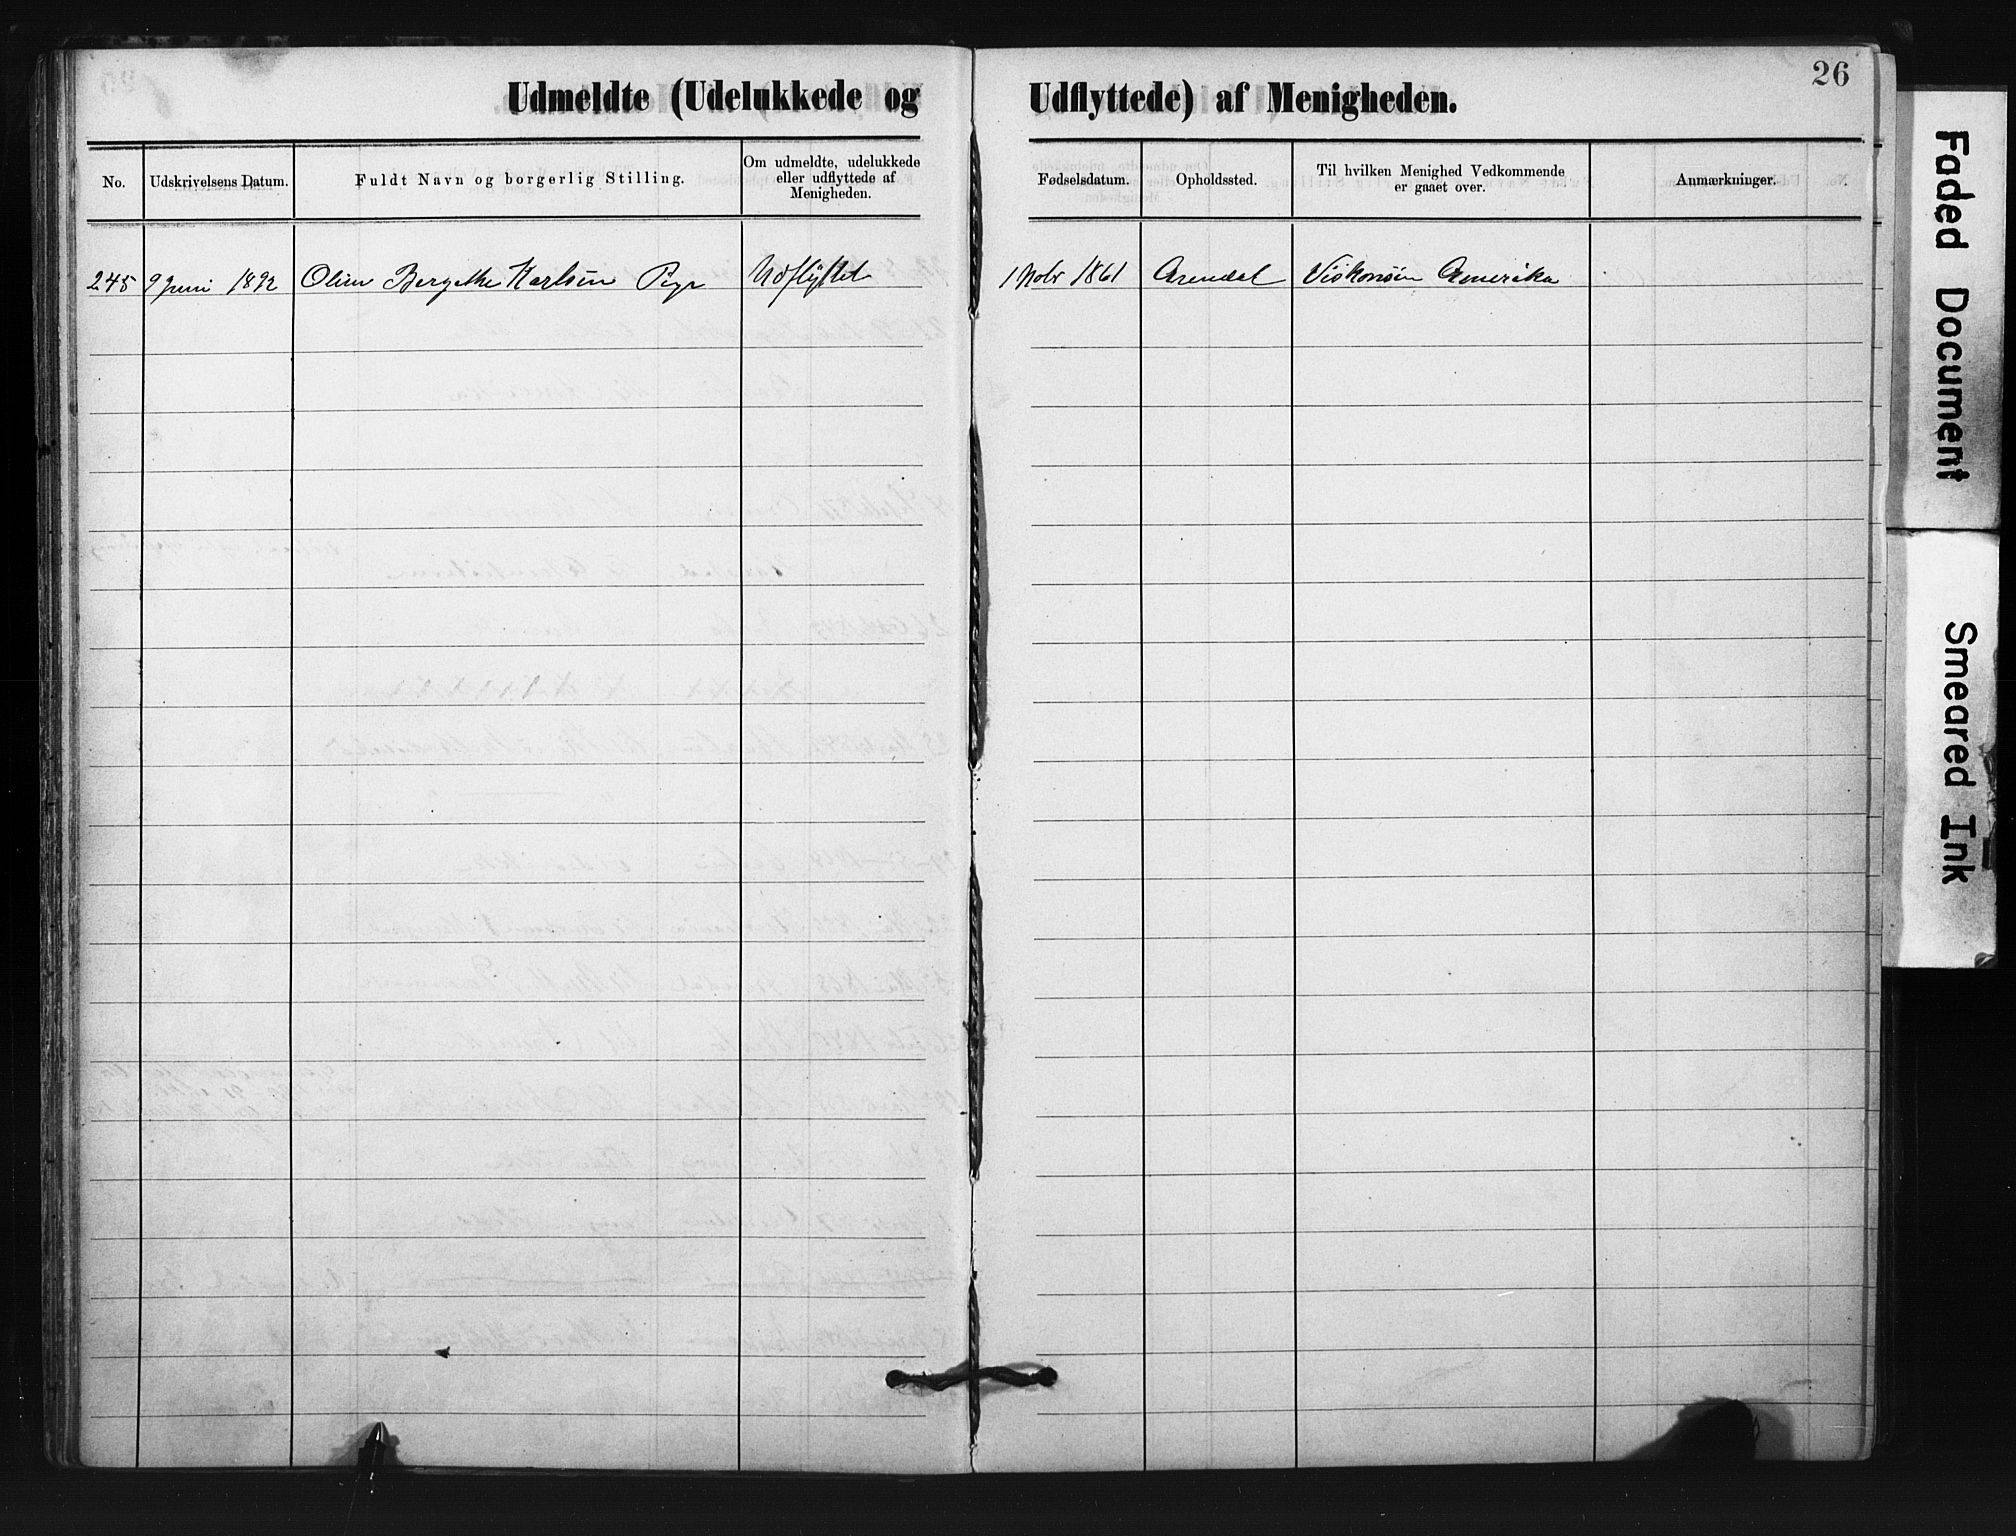 26
Udmeldte (Udelukkede og Udflyttede) af Menigheden.
No. Udskrivelsens Datum. Fuldt Navn og borgerlig Stilling. Om udmeldte, udelukkede eller udflyttede af Menigheden. Fødselsdatum. Opholdssted. Til hvilken Menighed Vedkommende er gaaet over. Anmærkninger.
245 9 Juni 1892 Oline Bergethe Karlsen Pige Udflyttet 1 Nobr 1861 Arendal Viskonsin Amerika
Faded Document
Smeared Ink